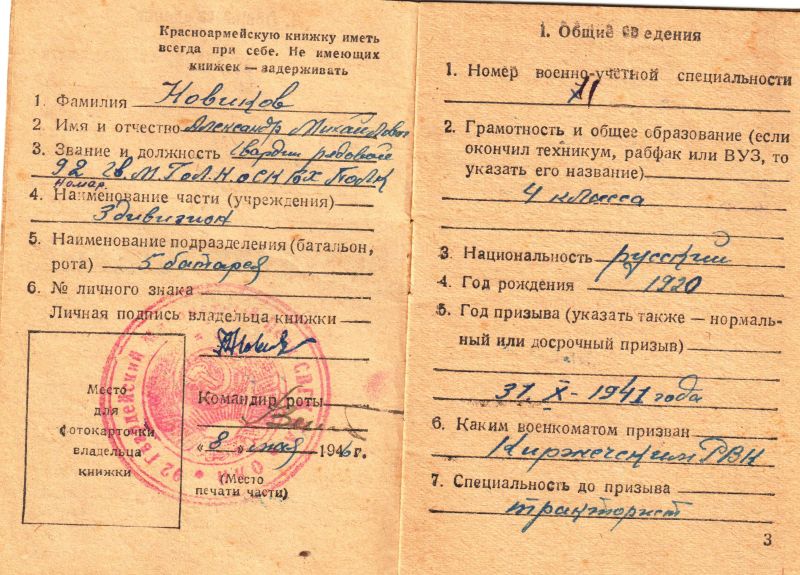 Красноармейскую книжку иметь
всегда при себе. Не имеющих
книжек — задерживать
1. Фамилия Новиков
2. Имя и отчество Александр Михайлович
3. Звание и должность Гвардии рядовой
92 Гв. М. Полк
4. Наименование части (учреждения)
3 дивизион
5. Наименование подразделения (батальон,
рота) 5 батарея
6. № личного знака
Личная подпись владельца книжки
Место
для
фотокарточки
владельца
книжки
Командир роты
„8" мая 1946 г.
(Место
печати части)
92 Гвардейский
1. Общие сведения
1. Номер военно-учетной специальности
11
2. Грамотность и общее образование (если
окончил техникум, рабфак или ВУЗ, то
указать его название)
4 класса
3. Национальность русский
4. Год рождения 1920
5. Год призыва (указать также — нормаль-
ный или досрочный призыв)
31. X - 1941 года
6. Каким военкоматом призван
Киржачским РВК
7. Специальность до призыва
тракторист
3